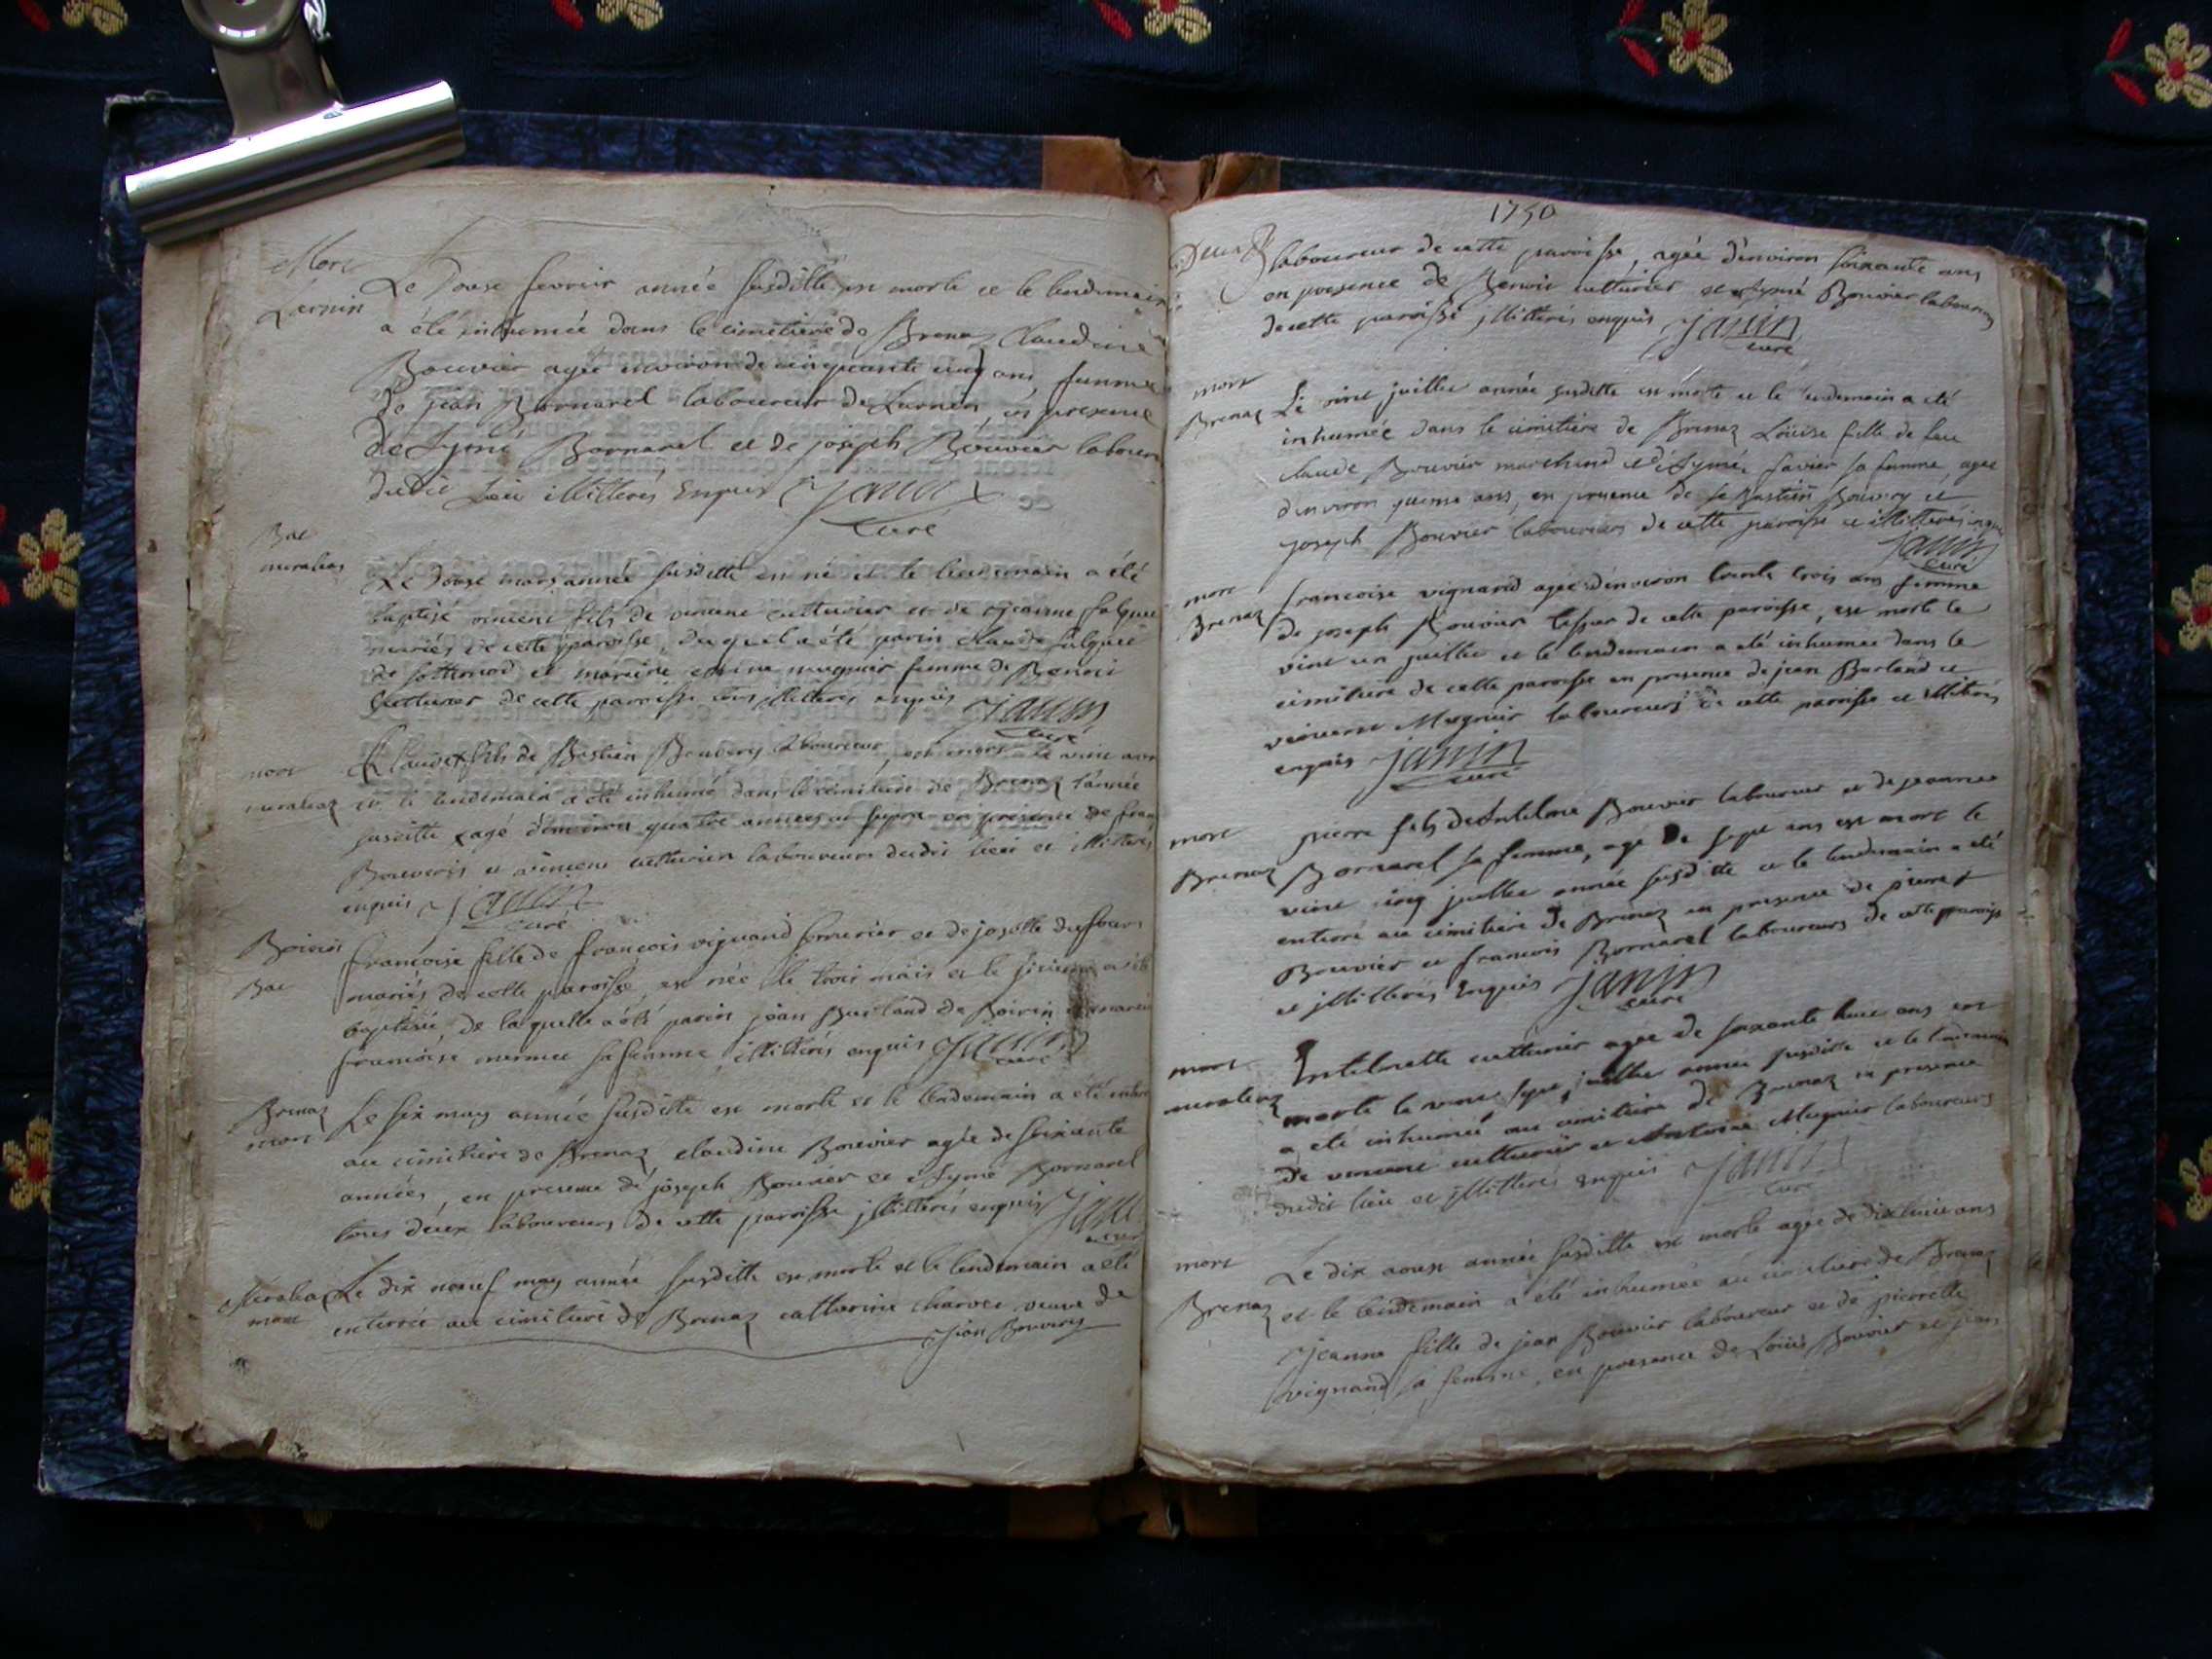 Mort
Lernin
Le douse fevrier année susditte est morte et le lendemain
a été inhumée dans le cimetiere de Brenaz Claudine
Bouvier agée environ de cinquante cinq ans, femme
de jean Bornarel laboureur de Lernin, en presence
de Aymé Bornarel et de joseph Bouvier labour
dudit lieu illitterés enquis Janin
curé
Bat
Le douse mars année susditte est né et le lendemain a été
baptisé vincent fils de vincent cutturier et de jeanne falque
mariés de cette paroisse, duquel a été parin claude falque
de et maraine mugnier femme de Benoit
Cutturier de cette paroisse tous illitterés enquis Janin
curé
mort
Claude fils de Bestien Bouvery laboureur, est mort le vint avr
et le lendemain a été inhumé dans le cimetiere de Brenaz l'année
susditte agé d'environ quatre années et en présence de fran
et vincent cutturier laboureurs dudit lieu et illitterés
enquis Janin
curé
Boirin
Bat
francoise fille de francois vignand et de josette dufour
mariés de cette paroisse, est née le troi mars et le a été
baptisée, de laquelle a été parin jean Burland de Boirin
francoise sa femme, illitterés enquis Janin
curé
Brenaz
mort
Le six may année susditte est morte et le lendemain a été
au cimitiere de Brenaz claudine Bouvier agée de soixante
années, en presence de joseph Bouvier et Aymé Bornarel
tous deux laboureurs de cette paroisse illitterés enquis Janin
curé
mort
Le dix neuf may année susditte est morte et le lendemain a été
enterrée au cimitiere de Brenaz catherine charvet veuve de
jean Bouvery
1750
laboureur de cette paroisse, agée d'environ soixante ans
en presence de Benoit cutturier et Aymé Bouvier laboureurs
de cette paroisse illitterés enquis Janin
curé
mort
Brenaz
Le vint juillet année susditte est morte et le lendemain a été
inhumée dans le cimitiere de Brenaz Loüise fille de feu
claude Bouvier marchand et d'Aymée favier sa femme, agée
d'environ quinse ans, en presence de sebastien Bouvery et
joseph Bouvier laboureurs de cette paroisse et illitterés enquis
Janin
curé
mort
Brenaz
francoise vignand agée d'environ trente trois ans femme
de joseph Bouvier de cette paroisse, est morte le
vint un juillet et le lendemain a été inhumée dans le
cimitiere de cette paroisse en presence de jean Burland et
vincent Mugnier laboureurs de cette paroisse et illitterés
enquis Janin
curé
mort
Brenaz
pierre fils de Antelme Bouvier laboureur et de jeanne
Bornarel sa femme, agé de sept ans est mort le
vint cinq juillet année susditte et le lendemain a été
enterré au cimitiere de Brenaz en presence de pierre
Bouvier et francois Bornarel laboureurs de cette paroisse
et illitterés enquis Janin
curé
mort
Antelmette cutturier agée de soixante huit ans est
morte le vint sept juillet année susditte et le lendemain
a été inhumée au cimitiere de Brenaz en presence
de vincent cutturier et Antoine Mugnier laboureurs
dudit lieu et illitterés enquis Janin
curé
mort
Brenaz
Le dix aoust année susditte est morte agée de dix huit ans
et le lendemain a été inhumée au cimitiere de Brenaz
Jeanne fille de jean Bouvier laboureur et de pierrette
vignand sa femme, en presence de Loüis Bouvier et jean